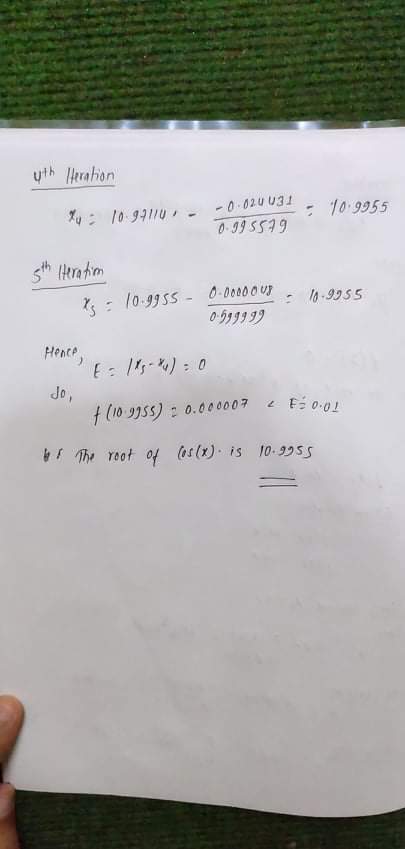 4th Iteration
x₄ = 10.97114 - -0.024431 / 0.995579 = 10.9955
5th Iteration
x₅ = 10.9955 - 0.0000048 / 0.999999 = 10.9955
Hence,
E = |x₅-x₄| = 0
So,
f(10.9955) = 0.000007 < E = 0.01
The root of Cos(x). is 10.9955